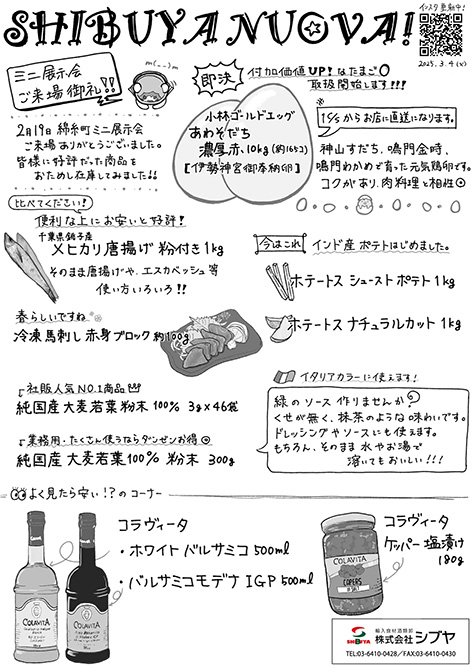 SHIBUYA NUOVA!
インスタ更新中!
2025.3.4(火)
ミニ展示会
ご来場御礼!!
m(_ _)m
2月19日 錦糸町ミニ展示会
ご来場ありがとうございました。
皆様に好評だった商品を
おためし在庫してみました!!
即決
付加価値UP!なたまご
取扱開始します!!!
小林ゴールドエッグ
あわそだち
濃厚赤、10kg(約165コ)
[伊勢神宮御奉納卵]
1ケからお店に直送になります。
神山すだち、鳴門金時、
鳴門わかめで育った元気鶏卵です。
コクがあり、肉料理と相性◎
比べてください!
便利な上にお安いと好評!
千葉県銚子産
メヒカリ唐揚げ 粉付き1kg
そのまま唐揚げや、エスカベッシュ等
使い方いろいろ!!
今はこれ!
インド産 ポテトはじめました。
ホテートス シュースト ポテト 1kg
ホテートス ナチュラルカット 1kg
春らしいですね
冷凍 馬刺し 赤身ブロック 約100g
社販人気NO.1商品
純国産 大麦若葉 粉末 100% 3g×46袋
業務用・たくさん使うならダンゼンお得◎
純国産 大麦若葉100% 粉末 300g
イタリアカラーに使えます!
緑のソース 作りませんか?
くせが無く、抹茶のような味わいです。
ドレッシングやソースにも使えます。
もちろん、そのまま 水やお湯で
溶いてもおいしい!!!
よく見たら安い!?のコーナー
コラヴィータ
・ホワイトバルサミコ 500ml
・バルサミコモデナ IGP 500ml
COLAVITA
COLAVITA
コラヴィータ
ケッパー塩漬け
180g
COLAVITA
CAPERS
SHIBUYA
輸入食材酒類卸
株式会社シブヤ
TEL:03-6410-0428/FAX:03-6410-0430